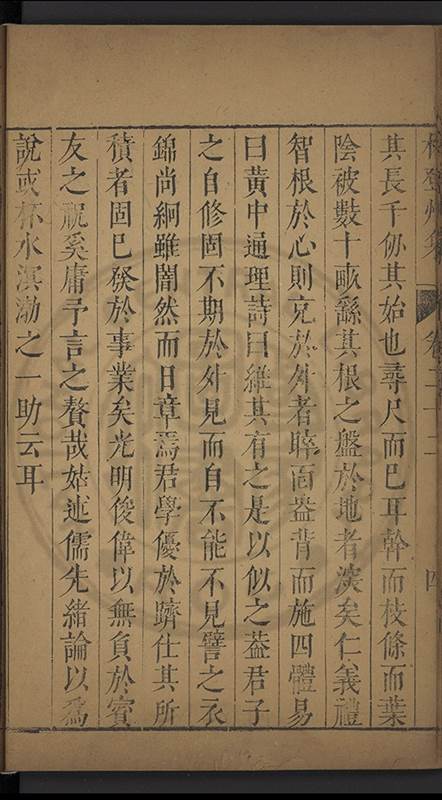 林登州集 卷二十二 四
其長千仞其始也尋尺而已耳幹而枝條而葉
陰被數十畝繇其根之盤於地者深矣仁義禮
智根於心則克於外者睟面盎背而施四體易
曰黃中通理詩曰維其有之是以似之葢君子
之自修固不期於外見而自不能不見譬之衣
錦尚絅雖闇然而日章焉君學優於躋仕其所
積者固已發於事業矣光明俊偉以無負於賓
友之祝奚庸予言之贅哉姑述儒先緒論以爲
說或杯水溟渤之一助云耳